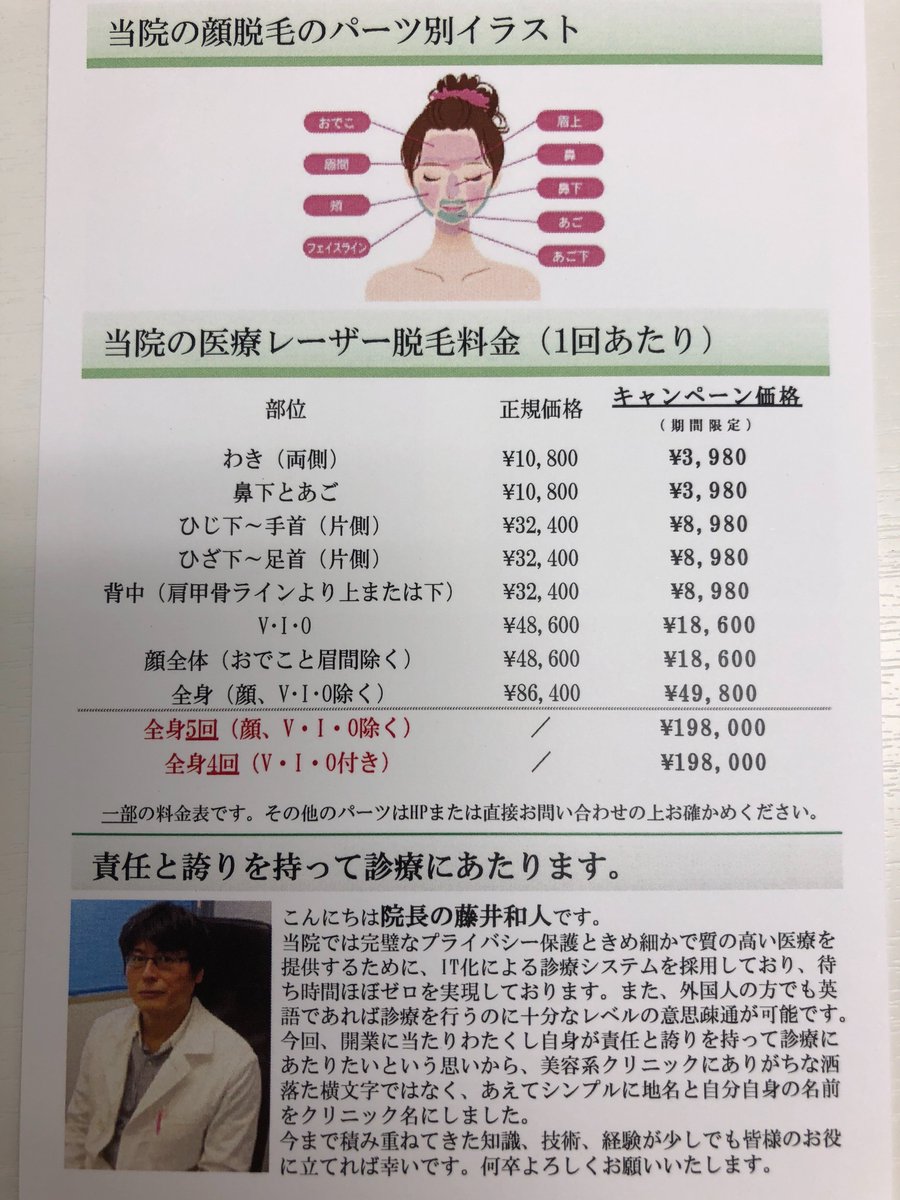 当院の顔脱毛のパーツ別イラスト
おでこ
眉間
頬
フェイスライン
眉上
鼻
鼻下
あご
あご下
当院の医療レーザー脱毛料金（1回あたり）
部位 正規価格 キャンペーン価格
（期間限定）
わき（両側） ¥10,800 ¥3,980
鼻下とあご ¥10,800 ¥3,980
ひじ下～手首（片側） ¥32,400 ¥8,980
ひざ下～足首（片側） ¥32,400 ¥8,980
背中（肩甲骨ラインより上または下） ¥32,400 ¥8,980
V・I・O ¥48,600 ¥18,600
顔全体（おでこと眉間除く） ¥48,600 ¥18,600
全身（顔、V・I・O除く） ¥86,400 ¥49,800
全身5回（顔、V・I・O除く） ／ ¥198,000
全身4回（V・I・O付き） ／ ¥198,000
一部の料金表です。その他のパーツはHPまたは直接お問い合わせの上お確かめください。
責任と誇りを持って診療にあたります。
こんにちは院長の藤井和人です。
当院では完璧なプライバシー保護ときめ細かで質の高い医療を
提供するために、IT化による診療システムを採用しており、待
ち時間ほぼゼロを実現しております。また、外国人の方でも英
語であれば診療を行うのに十分なレベルの意思疎通が可能です。
今回、開業に当たりわたくし自身が責任と誇りを持って診療に
あたりたいという思いから、美容系クリニックにありがちな洒
落た横文字ではなく、あえてシンプルに地名と自分自身の名前
をクリニック名にしました。
今まで積み重ねてきた知識、技術、経験が少しでも皆様のお役
に立てれば幸いです。何卒よろしくお願いいたします。